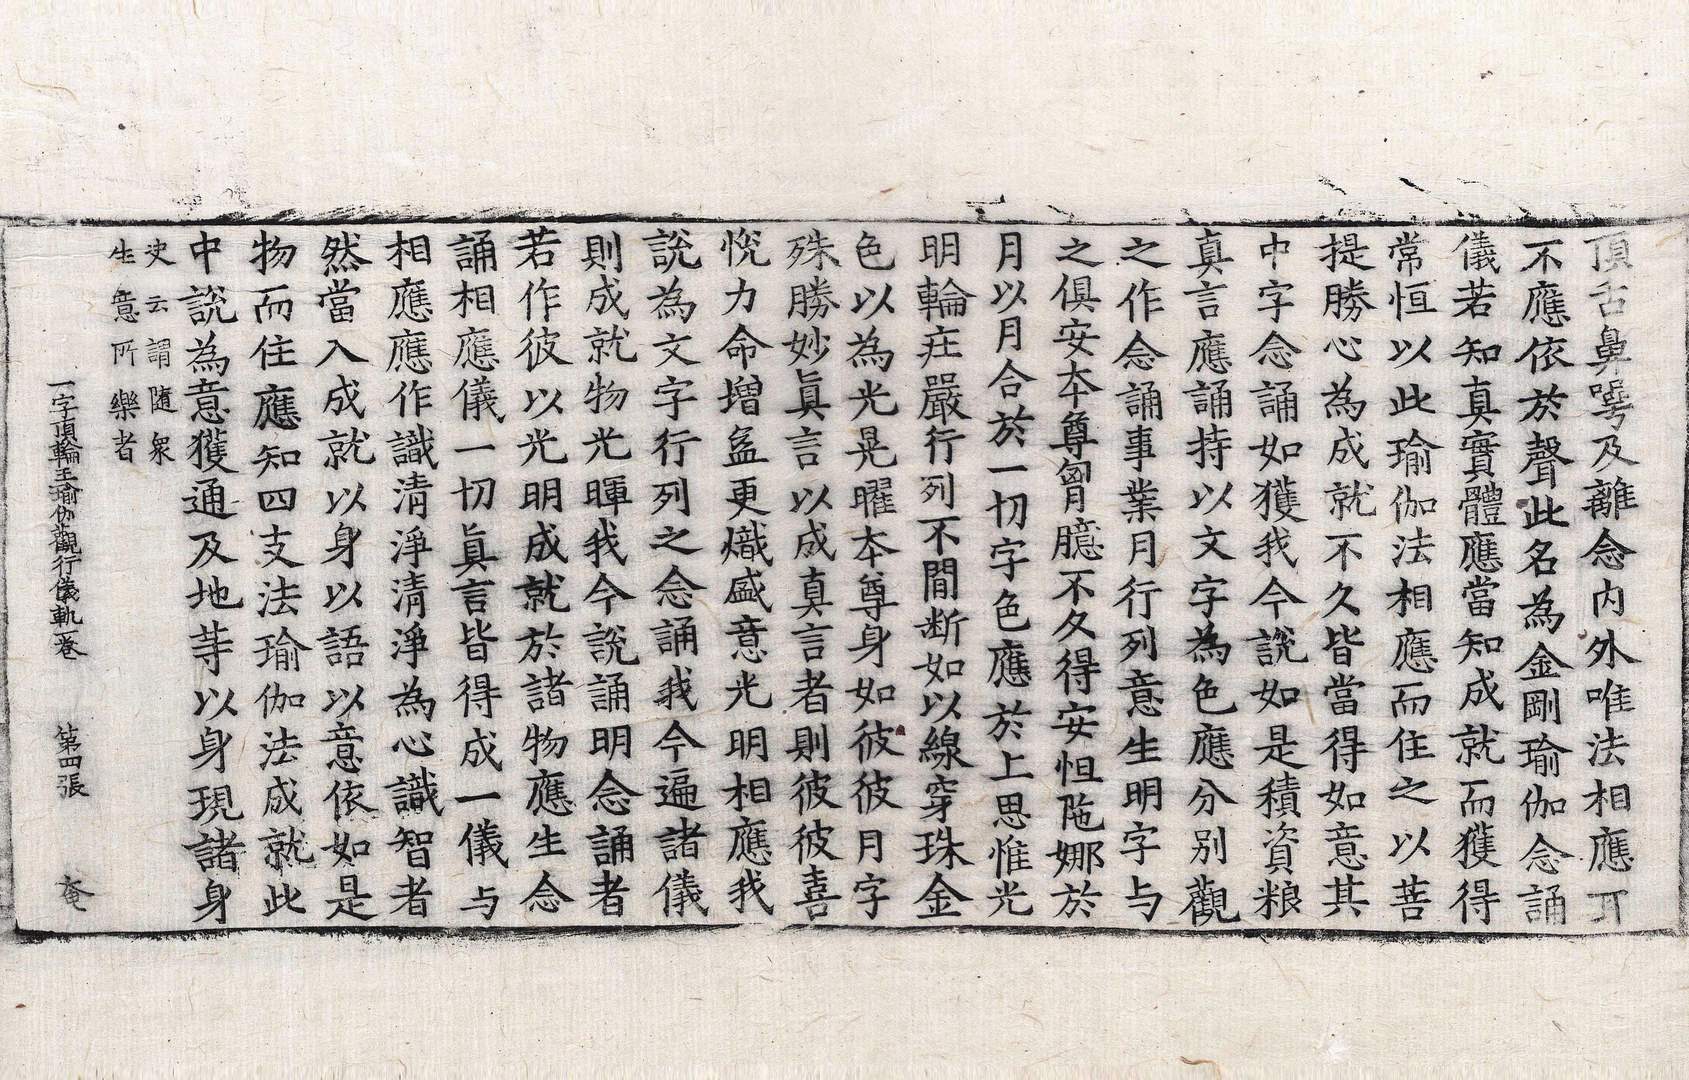 頂舌鼻㗁及離念内外唯法相應
不應依於聲此名為金剛瑜伽念誦
儀若知真實體應當知成就而獲得
常恒以此瑜伽法相應而住之以菩
提勝心為成就不久皆當得如意其
中字念誦如獲我今說如是積資粮
真言應誦持以文字為色應分别觀
之作念誦事業月行列意生明字与
之俱安夲尊胷臆不久得安怛陁娜於
月以月合於一切字色應於上思惟光
明輪莊嚴行列不間断如以線穿珠金
色以為光晃曜夲尊身如彼彼月字
殊勝妙眞言以成真言者則彼彼喜
悅力命增益更熾盛意光明相應我
說為文字行列之念誦我今遍諸儀
則成就物光暉我今說誦明念誦者
若作彼以光明成就於諸物應生念
誦相應儀一切眞言皆得成一儀与
相應應作識清淨清淨為心識智者
然當入成就以身以語以意依如是
物而住應知四支法瑜伽法成就此
中說為意獲通及地䓁以身現諸身
史云謂隨衆
生意所樂者
一字頂輪王瑜伽觀行儀軌一卷 第四張 奄